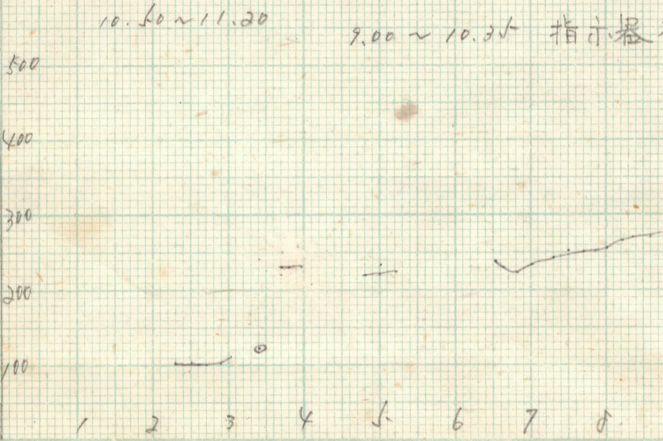 10.50~11.20
9.00~10.35 指示器
500
400
300
200
100
1 2 3 4 5 6 7 8